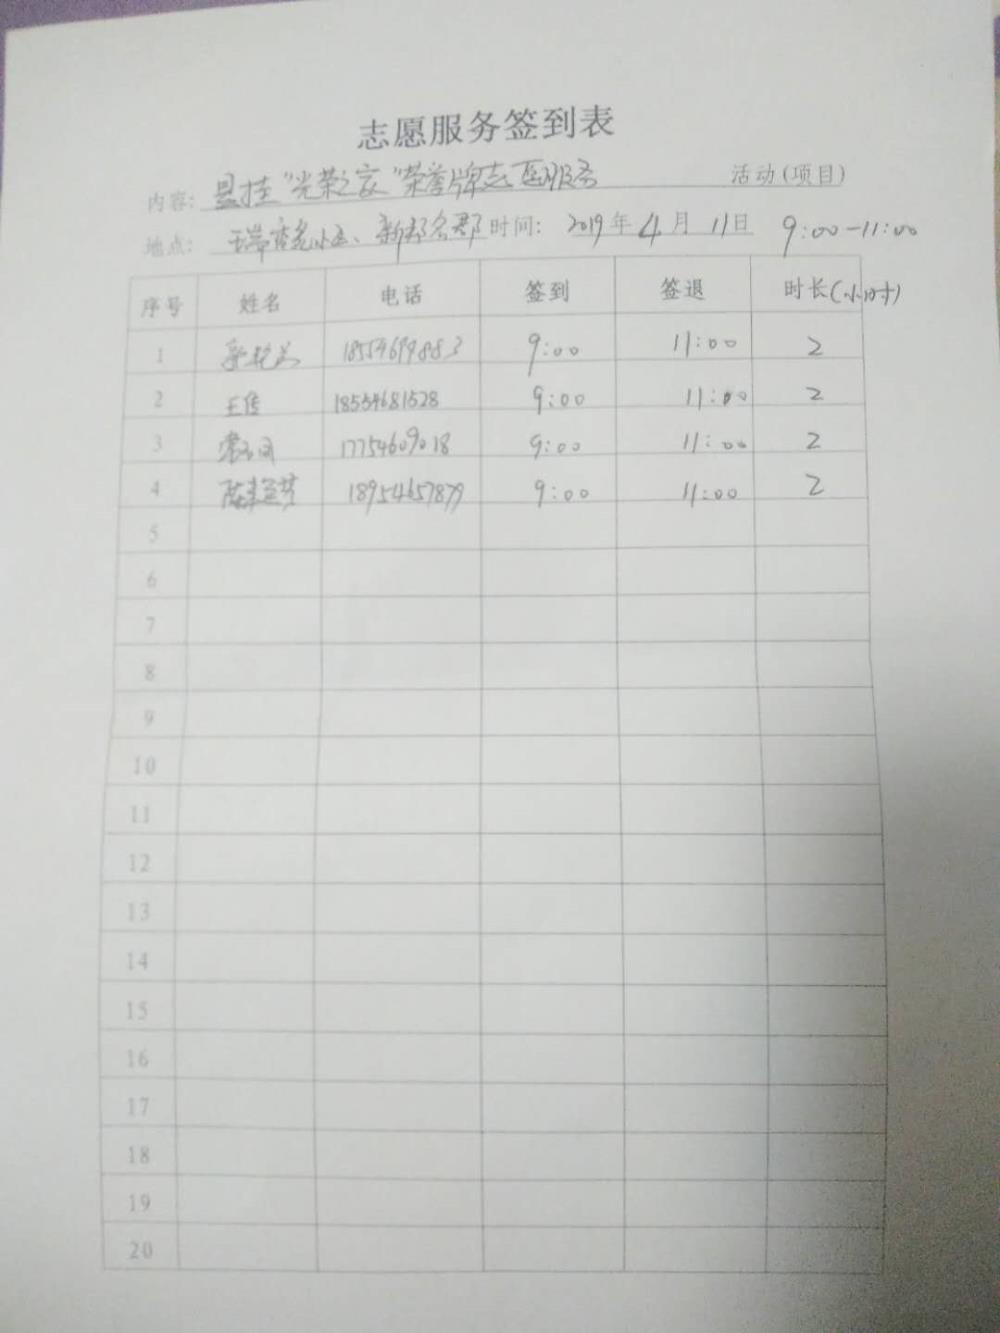 志愿服务签到表
内容：悬挂"光荣之家"荣誉牌志愿服务 活动(项目)
地点： 小区、新都名郡 时间：2019年4月11日 9:00-11:00
序号 姓名 电话 签到 签退 时长(小时)
1 18554699883 9:00 11:00 2
2 王传 18554681528 9:00 11:00 2
3 17754609018 9:00 11:00 2
4 18954657879 9:00 11:00 2
5
6
7
8
9
10
11
12
13
14
15
16
17
18
19
20